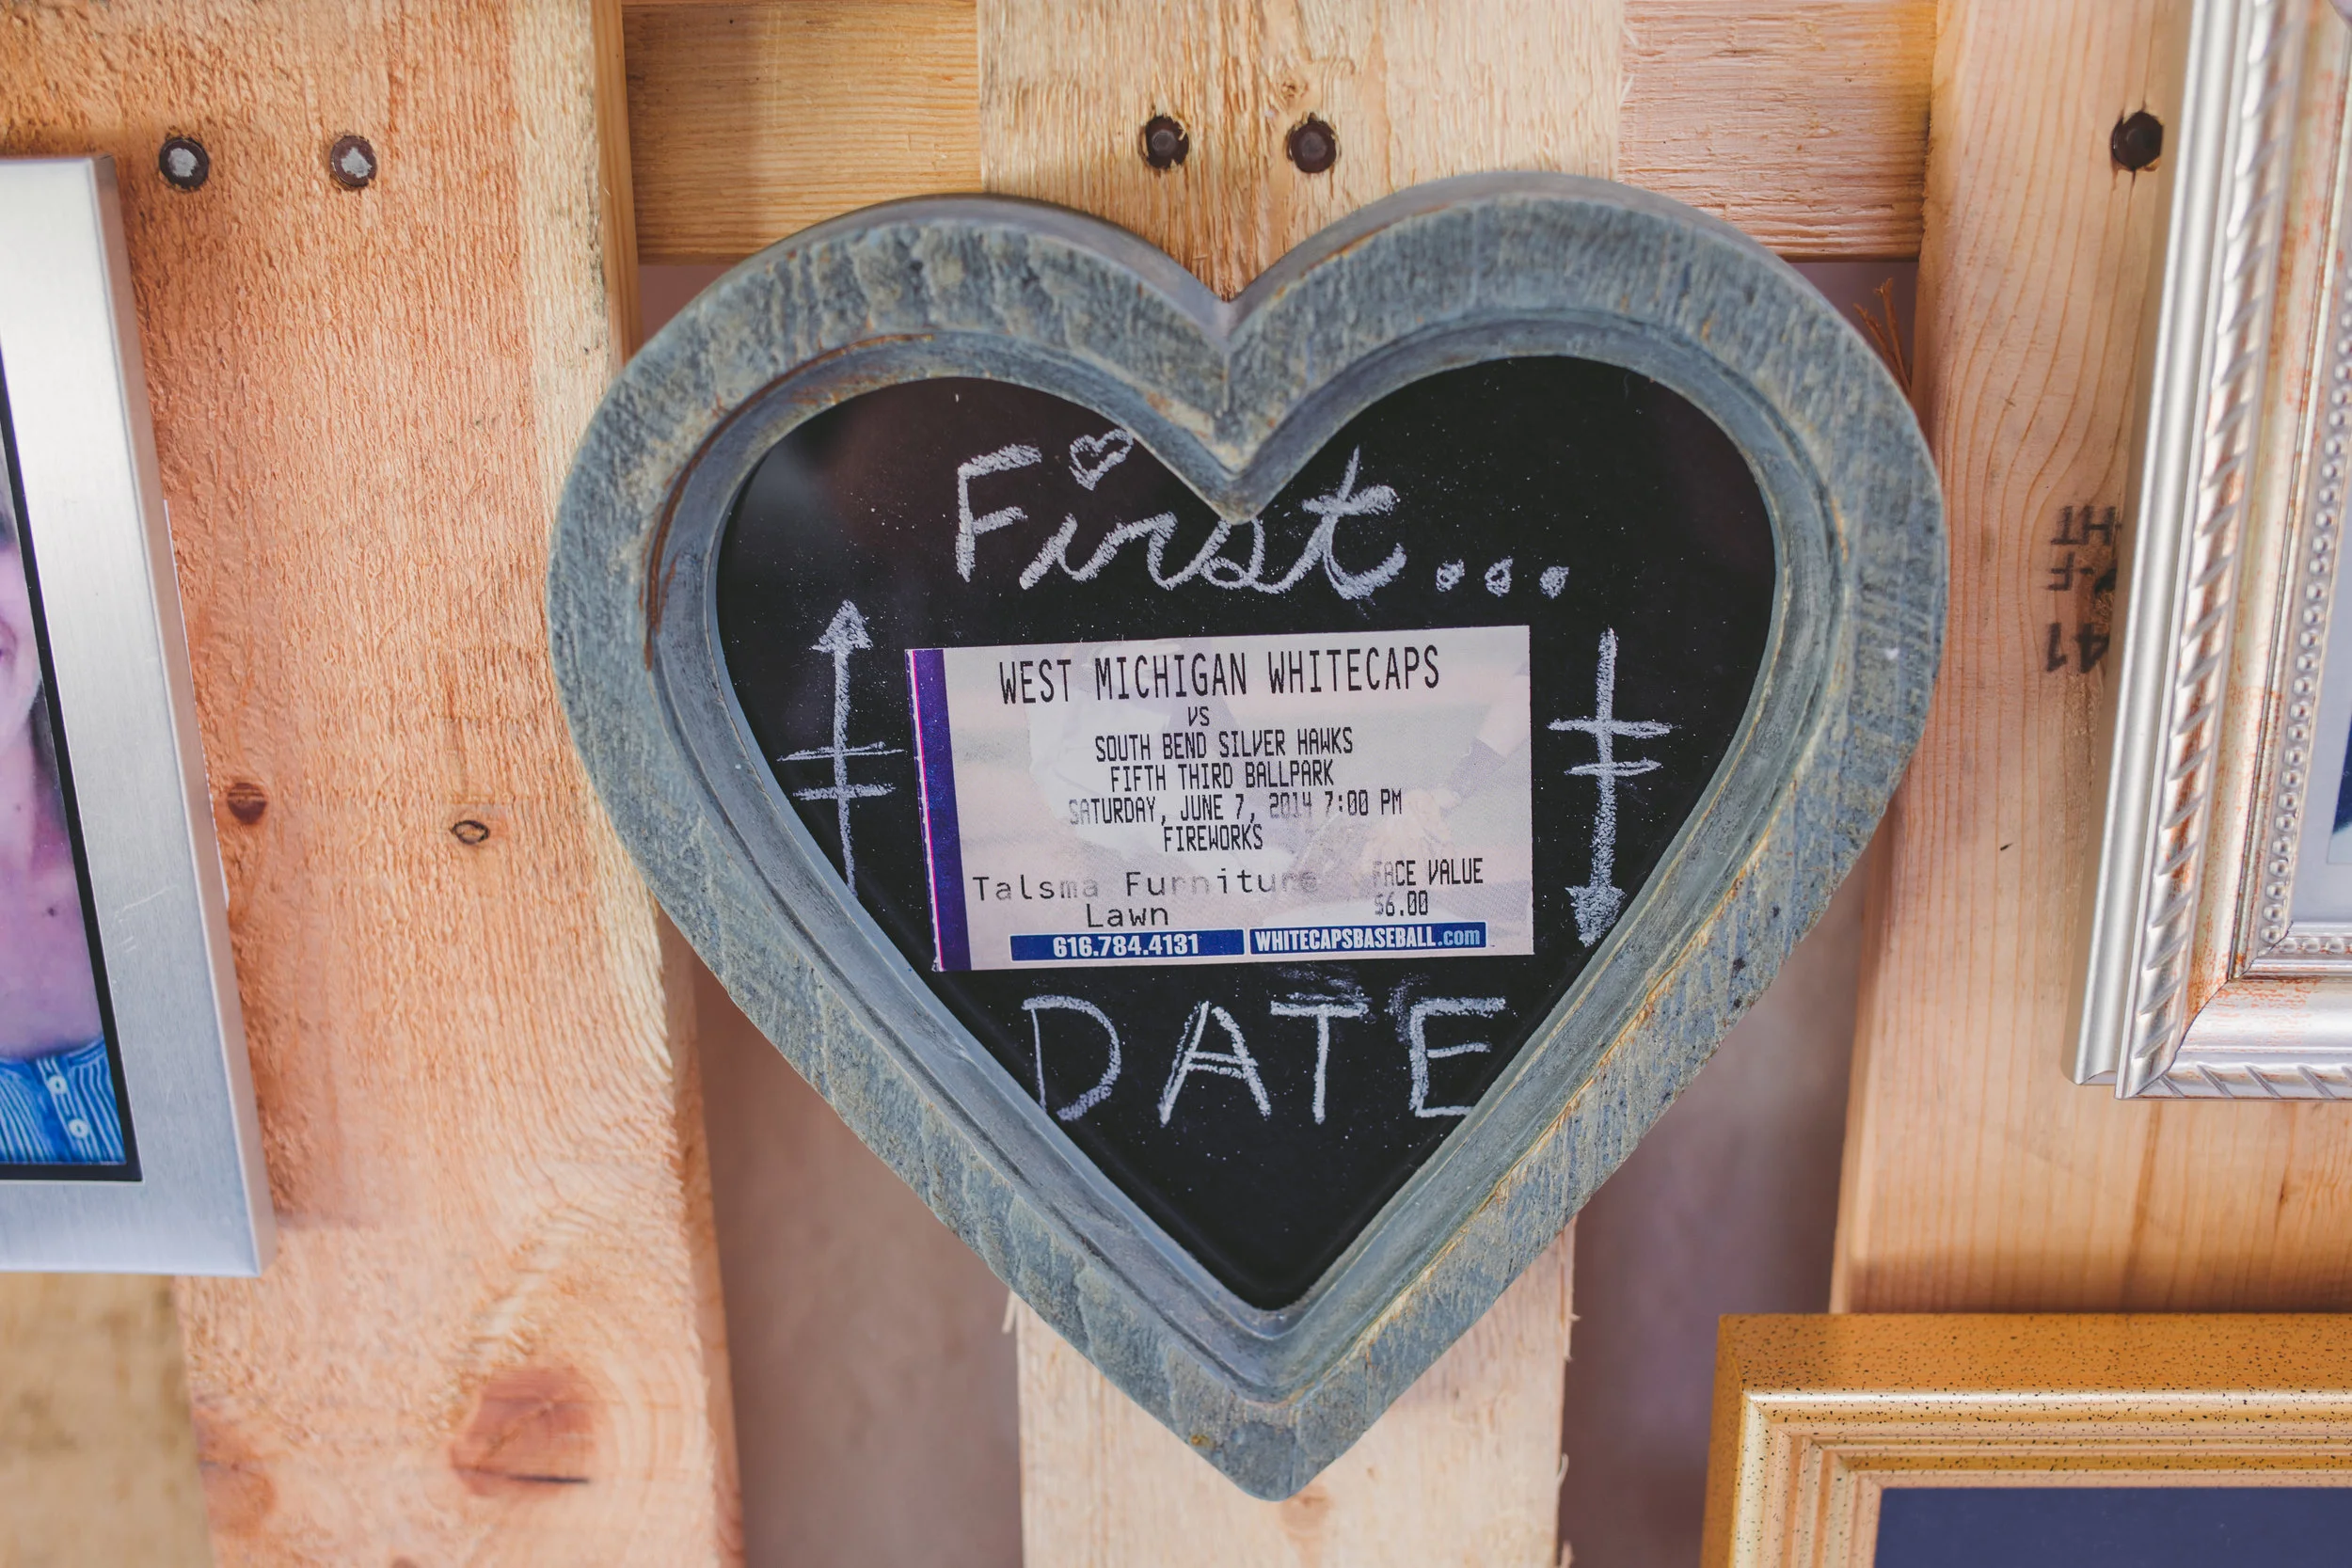 First...
WEST MICHIGAN WHITECAPS
VS
SOUTH BEND SILVER HAWKS
FIFTH THIRD BALLPARK
SATURDAY, JUNE 7, 2014 7:00 PM
FIREWORKS
Talsma Furniture
Lawn
FACE VALUE
$6.00
616.784.4131
WHITECAPSBASEBALL.com
DATE